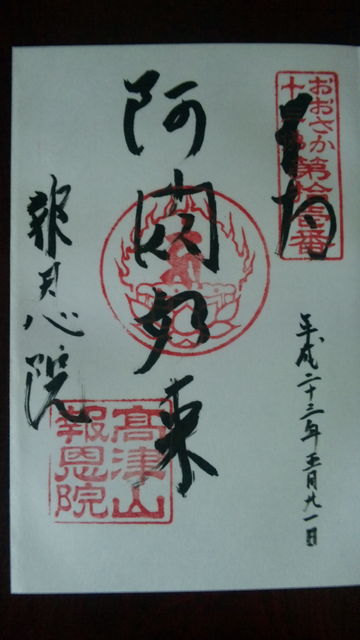 おおさか
十三佛
第拾壱番
奉拝
平成二十三年五月廿一日
阿閦如来
報恩院
高津山
報恩院